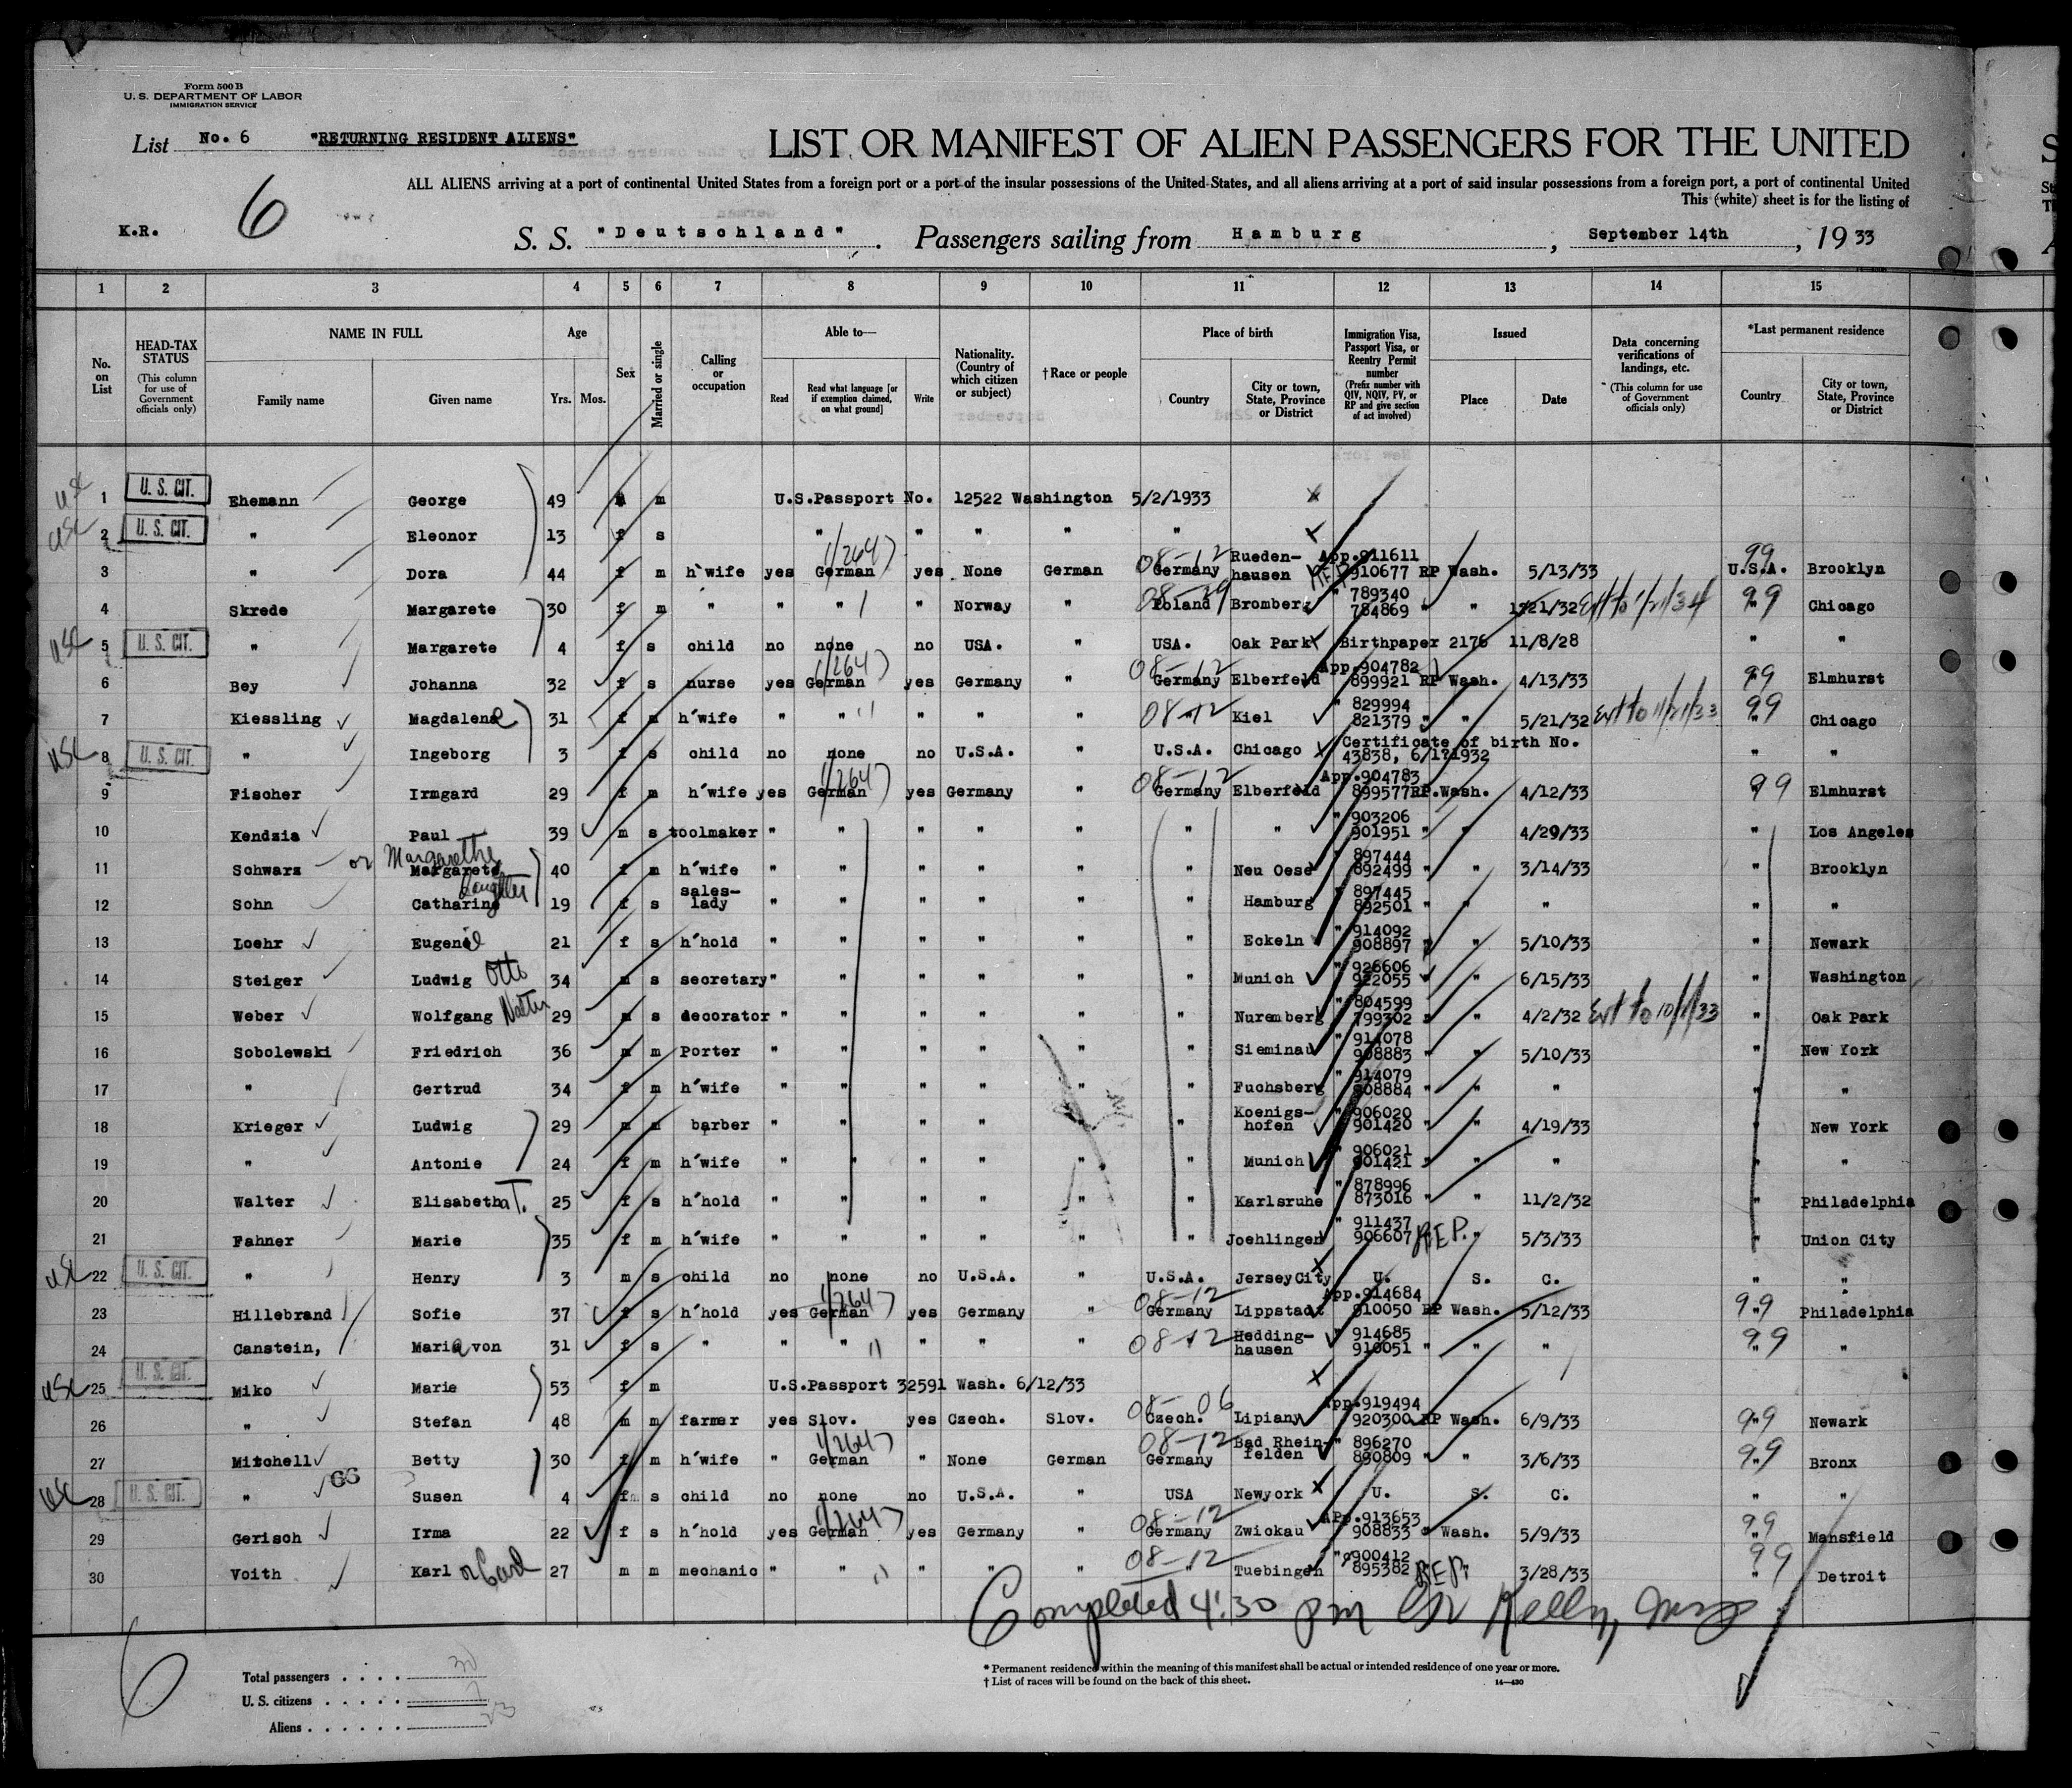 Form 500 B
U. S. DEPARTMENT OF LABOR
IMMIGRATION SERVICE
List No. 6 "RETURNING RESIDENT ALIENS" LIST OR MANIFEST OF ALIEN PASSENGERS FOR THE UNITED
ALL ALIENS arriving at a port of continental United States from a foreign port or a port of the insular possessions of the United States, and all aliens arriving at a port of said insular possessions from a foreign port, a port of continental United
This (white) sheet is for the listing of
K.R. 6 S. S. "Deutschland". Passengers sailing from Hamburg, September 14th, 1933
1 2 3 4 5 6 7 8 9 10 11 12 13 14 15
No. on List
HEAD-TAX STATUS (This column for use of Government officials only)
NAME IN FULL Family name Given name
Age Yrs. Mos.
Sex
Married or single
Calling or occupation
Able to— Read Read what language [or if exemption claimed, on what ground] Write
Nationality. (Country of which citizen or subject)
†Race or people
Place of birth Country City or town, State, Province or District
Immigration Visa, Passport Visa, or Reentry Permit number (Prefix number with QIV, NQIV, PV, or RP and give section of act involved)
Issued Place Date
Data concerning verifications of landings, etc. (This column for use of Government officials only)
*Last permanent residence Country City or town, State, Province or District
USC 1 U. S. CIT. Ehemann George 49 m U.S.Passport No. 12522 Washington 5/2/1933
USC 2 U. S. CIT. " Eleonor 13 f s " " " " "
3 " Dora 44 f m h'wife yes German 1/264 yes None German 08-12 Germany Rueden-hausen App.911611 910677 RP Wash. 5/13/33 99 U.S.A. Brooklyn
4 Skrede Margarete 30 f m " " " " Norway " Poland Bromberg " 789340 784869 " " Ext to 1/21/34 99 " Chicago
USC 5 U. S. CIT. " Margarete 4 f s child no none no USA. " USA. Oak Park Birthpaper 2176 11/8/28 " "
6 Bey Johanna 32 f s nurse yes German 1/264 yes Germany " 08-12 Germany Elberfeld App.904782 899921 RP Wash. 4/13/33 99 " Elmhurst
7 Kiessling Magdalene 31 f m h'wife " " " " " 08-12 " Kiel " 829994 821379 " " 5/21/32 Ext to 11/21/33 99 " Chicago
USC 8 U. S. CIT. " Ingeborg 3 f s child no none no U.S.A. " U.S.A. Chicago Certificate of birth No. 43838, 6/1?1932 " "
9 Fischer Irmgard 29 f m h'wife yes German 1/264 yes Germany " 08-12 Germany Elberfeld App.904783 899577 RP.Wash. 4/12/33 99 " Elmhurst
10 Kendzia Paul 39 m s toolmaker " " " " " " " " 903206 901951 " " 4/29/33 " Los Angeles
11 Schwarz or Margarethe Margarete 40 f m h'wife " " " " " " Neu Oese " 897444 892499 " " 3/14/33 " Brooklyn
12 Sohn Catharine daughter 19 f s sales-lady " " " " " " Hamburg " 897445 892501 " " " " "
13 Loehr Eugenie 21 f s h'hold " " " " " " Eckeln " 914092 908897 " " 5/10/33 " Newark
14 Steiger Ludwig Otto 34 m s secretary " " " " " " Munich " 926606 922055 " " 6/15/33 " Washington
15 Weber Wolfgang Walter 29 m s decorator " " " " " " Nuremberg " 804599 799302 " " 4/2/32 Ext to 10/1/33 " Oak Park
16 Sobolewski Friedrich 36 m m Porter " " " " " " Sieminau " 914078 908883 " " 5/10/33 " New York
17 " Gertrud 34 f m h'wife " " " " " " Fuchsberg " 914079 908884 " " " " "
18 Krieger Ludwig 29 m m barber " " " " " " Koenigs-hofen " 906020 901420 " " 4/19/33 " New York
19 " Antonie 24 f m h'wife " " " " " " Munich " 906021 901421 " " " " "
20 Walter Elisabetha T. 25 f s h'hold " " " " " " Karlsruhe " 878996 873016 " " 11/2/32 " Philadelphia
21 Fahner Marie 35 f m h'wife " " " " " " Joehlingen " 911437 906607 REP. " 5/3/33 " Union City
USC 22 U. S. CIT. " Henry 3 m s child no none no U.S.A. " U.S.A. JerseyCity U. S. C. " "
23 Hillebrand Sofie 37 f s h'hold yes German 1/264 yes Germany " 08-12 Germany Lippstadt App.914684 910050 RP Wash. 5/12/33 99 " Philadelphia
24 Canstein, Maria von 31 f s " " " " " " 08-12 " Hedding-hausen " 914685 910051 " " " 99 " "
USC 25 U. S. CIT. Miko Marie 53 f m U.S.Passport 32591 Wash. 6/12/33
26 " Stefan 48 m m farmer yes Slov. yes Czech. Slov. 08-06 Czech. Lipiany App.919494 920300 RP Wash. 6/9/33 99 " Newark
27 Mitchell Betty 30 f m h'wife " German 1/264 " None German 08-12 Germany Bad Rhein-felden " 896270 890809 " " 3/6/33 99 " Bronx
USC 28 U. S. CIT. " Susen 4 f s child no none no U.S.A. " USA Newyork U. S. C. " "
29 Gerisch Irma 22 f s h'hold yes German 1/264 yes Germany " 08-12 Germany Zwickau App.913653 908833 " Wash. 5/9/33 99 " Mansfield
30 Voith Karl or Carl 27 m m mechanic " " " " " 08-12 " Tuebingen " 900412 895382 REP. 3/28/33 99 " Detroit
Completed 4:30 pm Kelly, Insp
6
Total passengers . . . . 30
U. S. citizens . . . . . 7
Aliens . . . . . . 23
* Permanent residence within the meaning of this manifest shall be actual or intended residence of one year or more.
† List of races will be found on the back of this sheet. 14—430